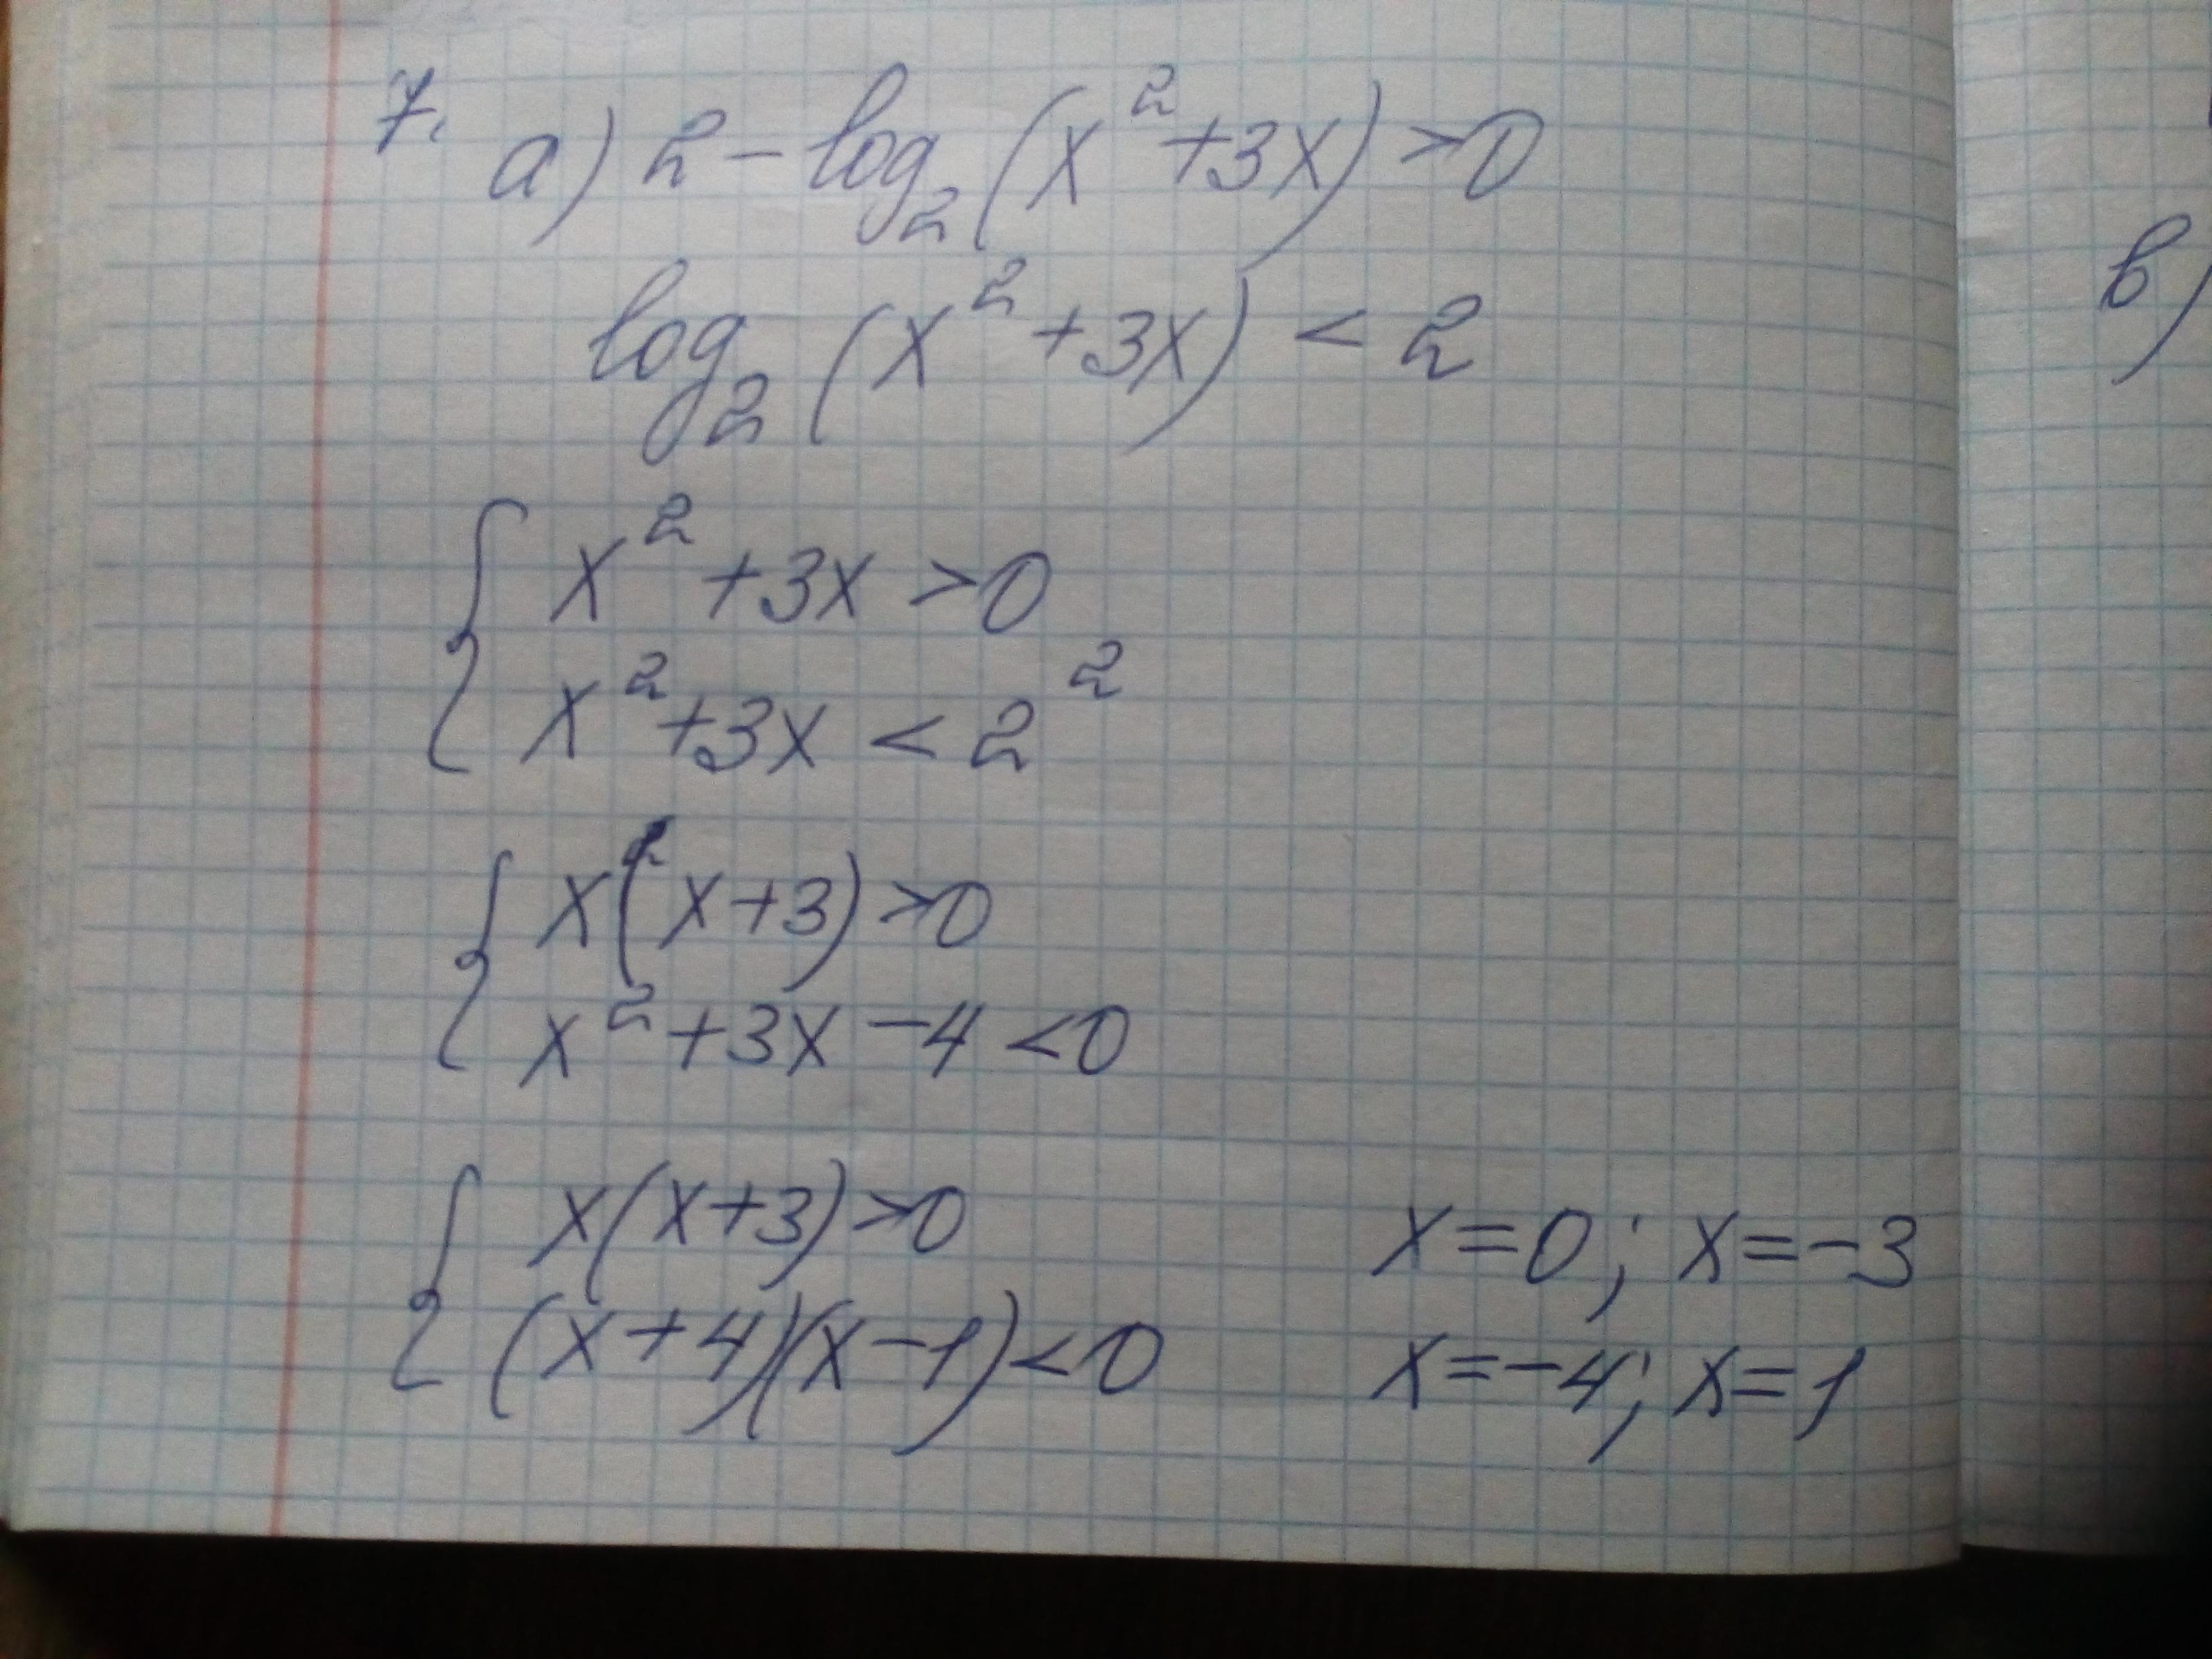 7. а) 2 - log₂(x² + 3x) > 0
log₂(x² + 3x) < 2
{ x² + 3x > 0
x² + 3x < 2²
{ x(x + 3) > 0
x² + 3x - 4 < 0
{ x(x + 3) > 0 x = 0; x = -3
(x + 4)(x - 1) < 0 x = -4; x = 1
в)